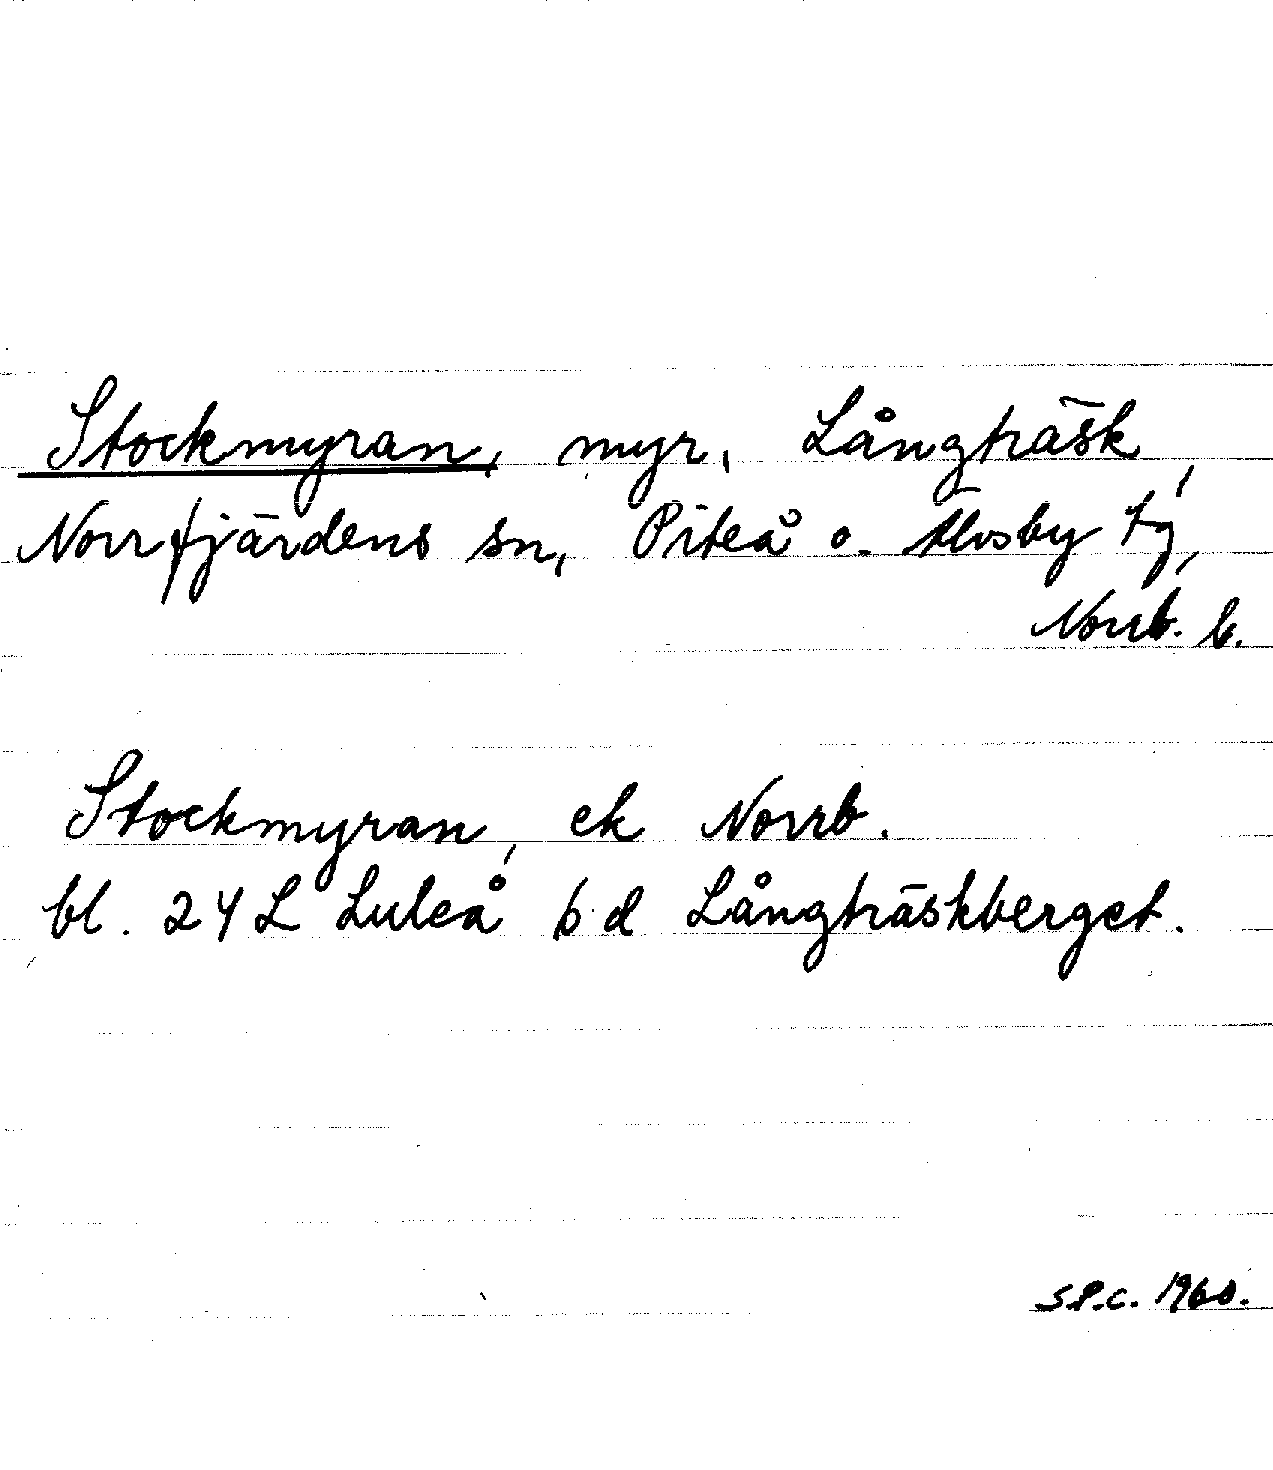 Stockmyran, myr, Långträsk,
Norrfjärdens sn, Piteå o. Älvsby tg,
Norrb. l.
Stockmyran, ek Norrb.
bl. 24 L Luleå b d Långträskberget.
S.P.C. 1960.